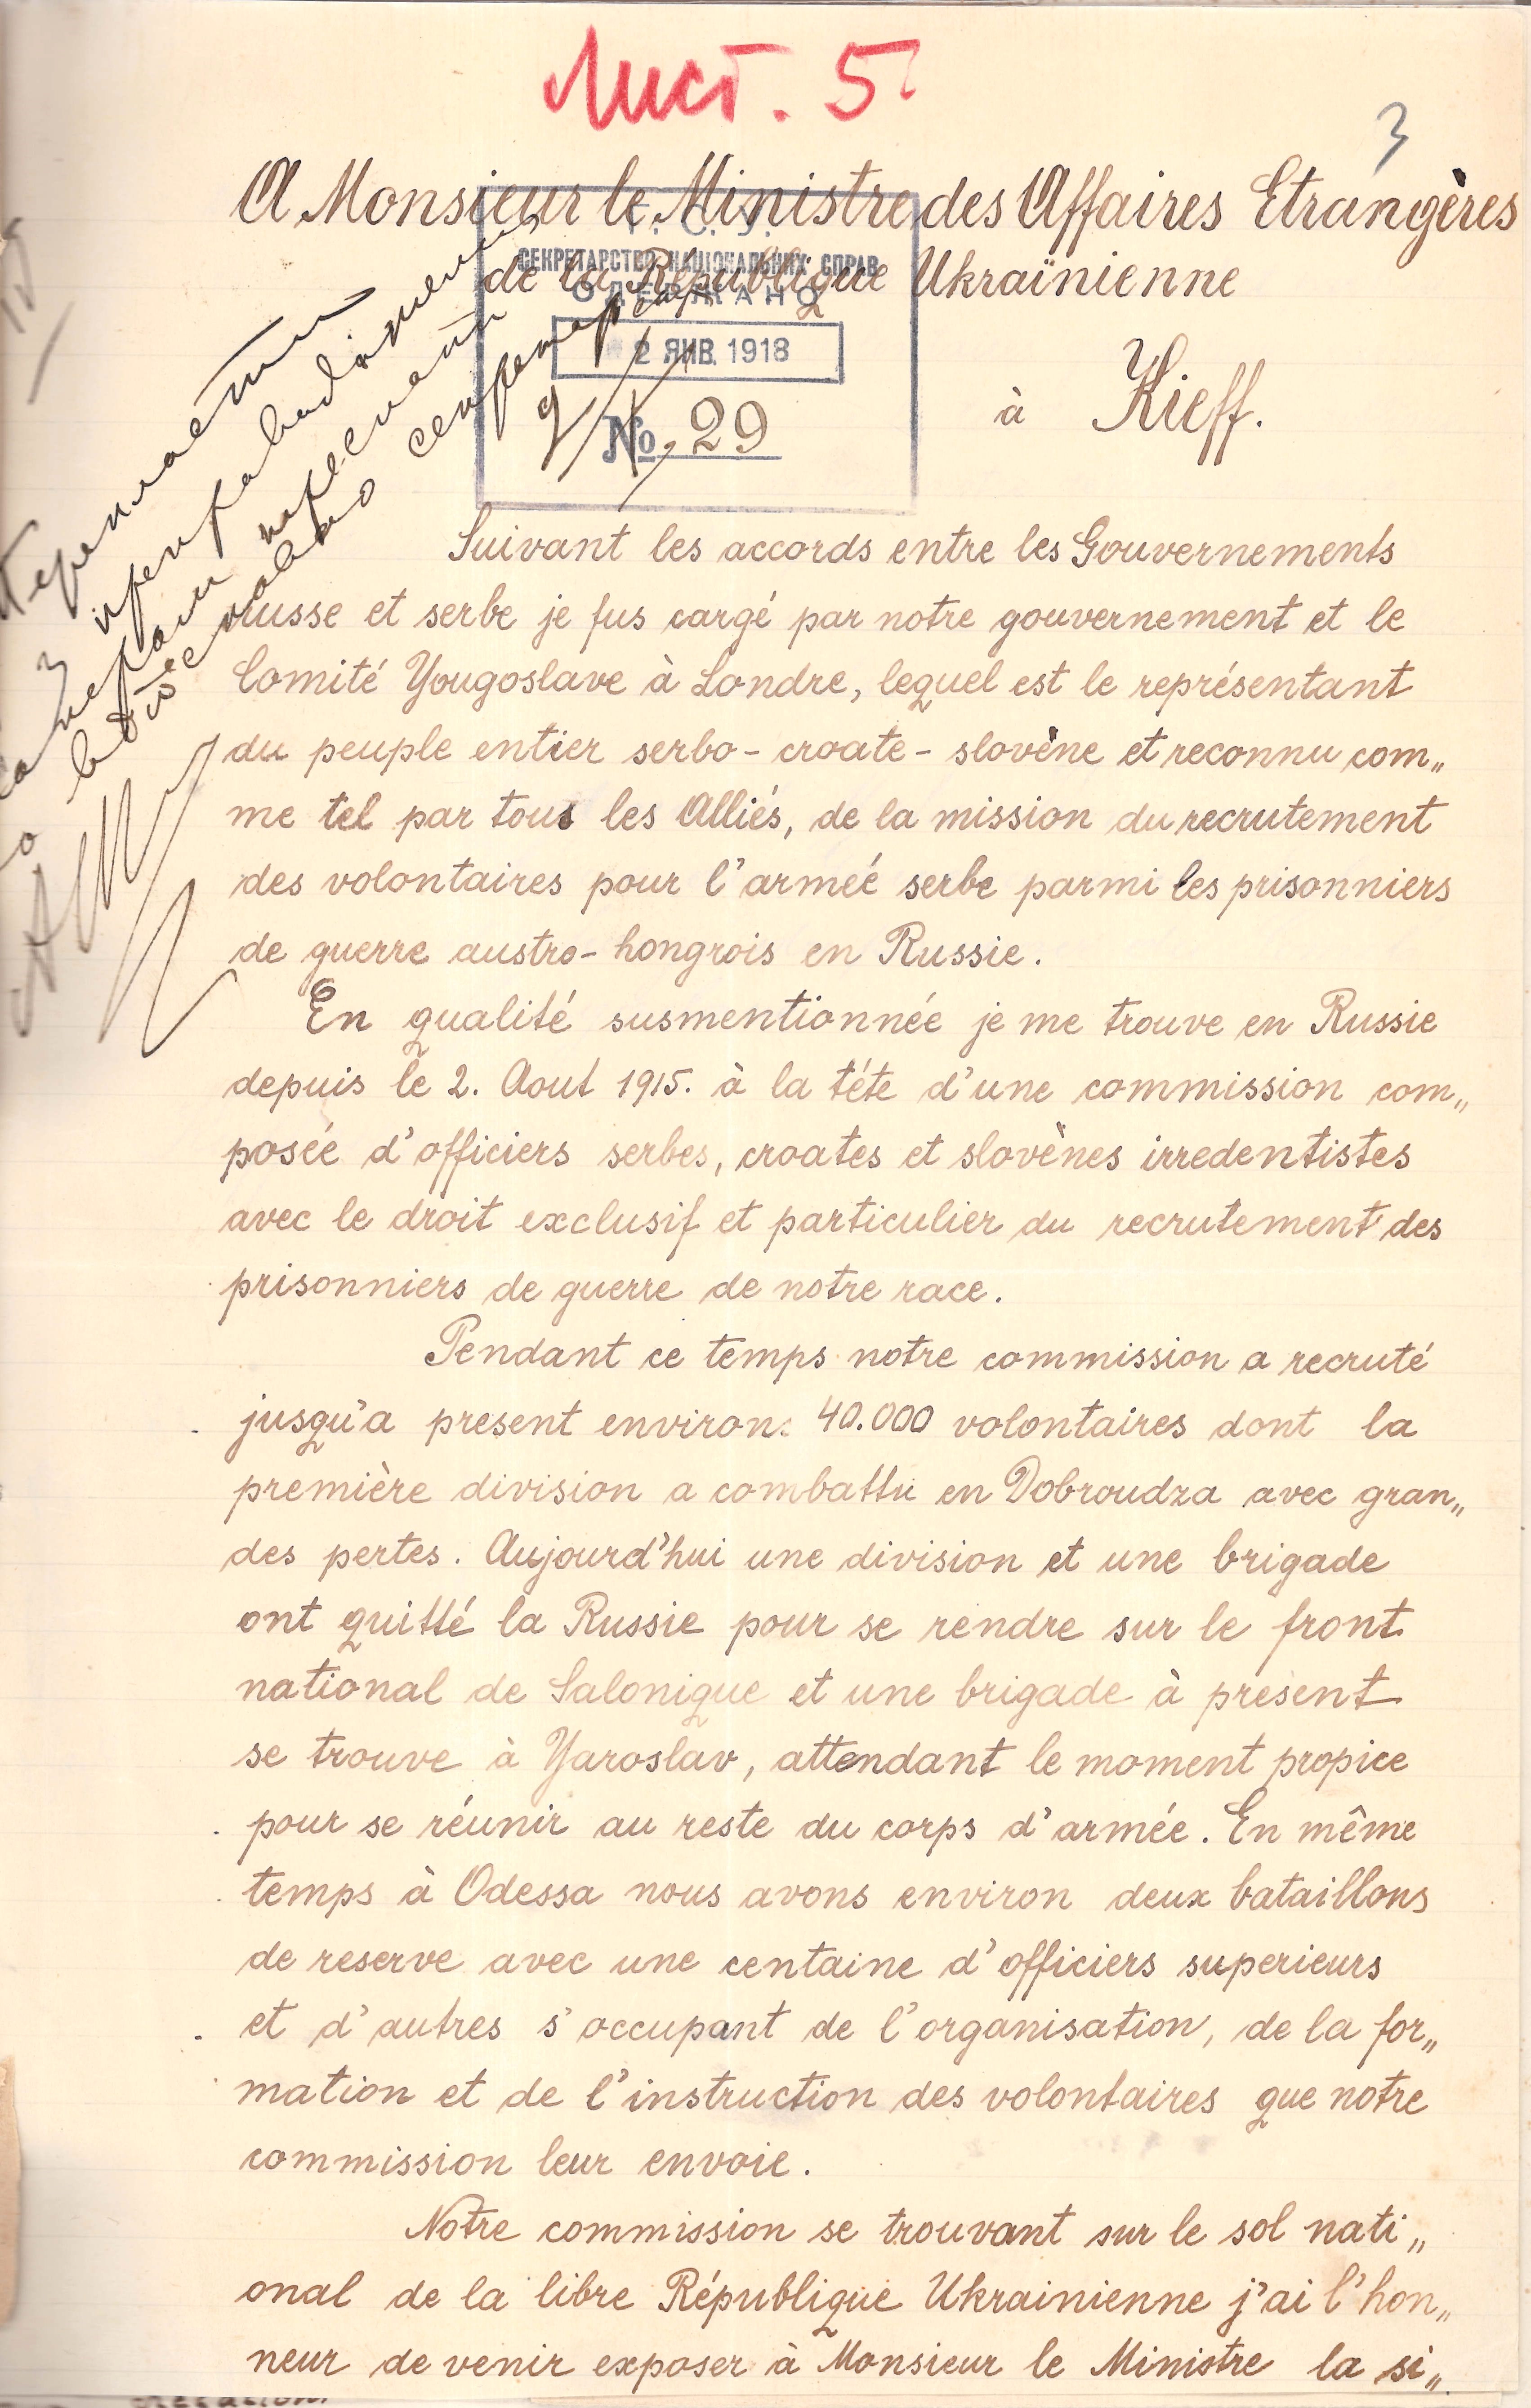 Лист. 5
3
A Monsieur le Ministre des Affaires Etrangères
de la République Ukraïnienne
à Kieff.
Г. С. У.
СЕКРЕТАРСТВО НАЦІОНАЛЬНИХ СПРАВ
ОДЕРЖАНО
2 ЯНВ. 1918
№ 29
Suivant les accords entre les Gouvernements
russe et serbe je fus cargé par notre gouvernement et le
Comité Yougoslave à Londre, lequel est le représentant
du peuple entier serbo-croate-slovène et reconnu com„
me tel par tous les Alliés, de la mission du recrutement
des volontaires pour l'arméé serbe parmi les prisonniers
de guerre austro-hongrois en Russie.
En qualité susmentionnée je me trouve en Russie
depuis le 2. Aout 1915. à la téte d'une commission com„
posée d'officiers serbes, croates et slovènes irredentistes
avec le droit exclusif et particulier du recrutement des
prisonniers de guerre de notre race.
Pendant ce temps notre commission a recruté
jusqu'a present environ 40.000 volontaires dont la
première division a combattu en Dobroudza avec gran„
des pertes. Aujourd'hui une division et une brigade
ont quitté la Russie pour se rendre sur le front
national de Salonique et une brigade à présent
se trouve à Yaroslav, attendant le moment propice
pour se réunir au reste du corps d'armée. En même
temps à Odessa nous avons environ deux bataillons
de reserve avec une centaine d'officiers superieurs
et d'autres s'occupant de l'organisation, de la for„
mation et de l'instruction des volontaires que notre
commission leur envoie.
Notre commission se trouvant sur le sol nati„
onal de la libre République Ukrainienne j'ai l'hon„
neur de venir exposer à Monsieur le Ministre la si„